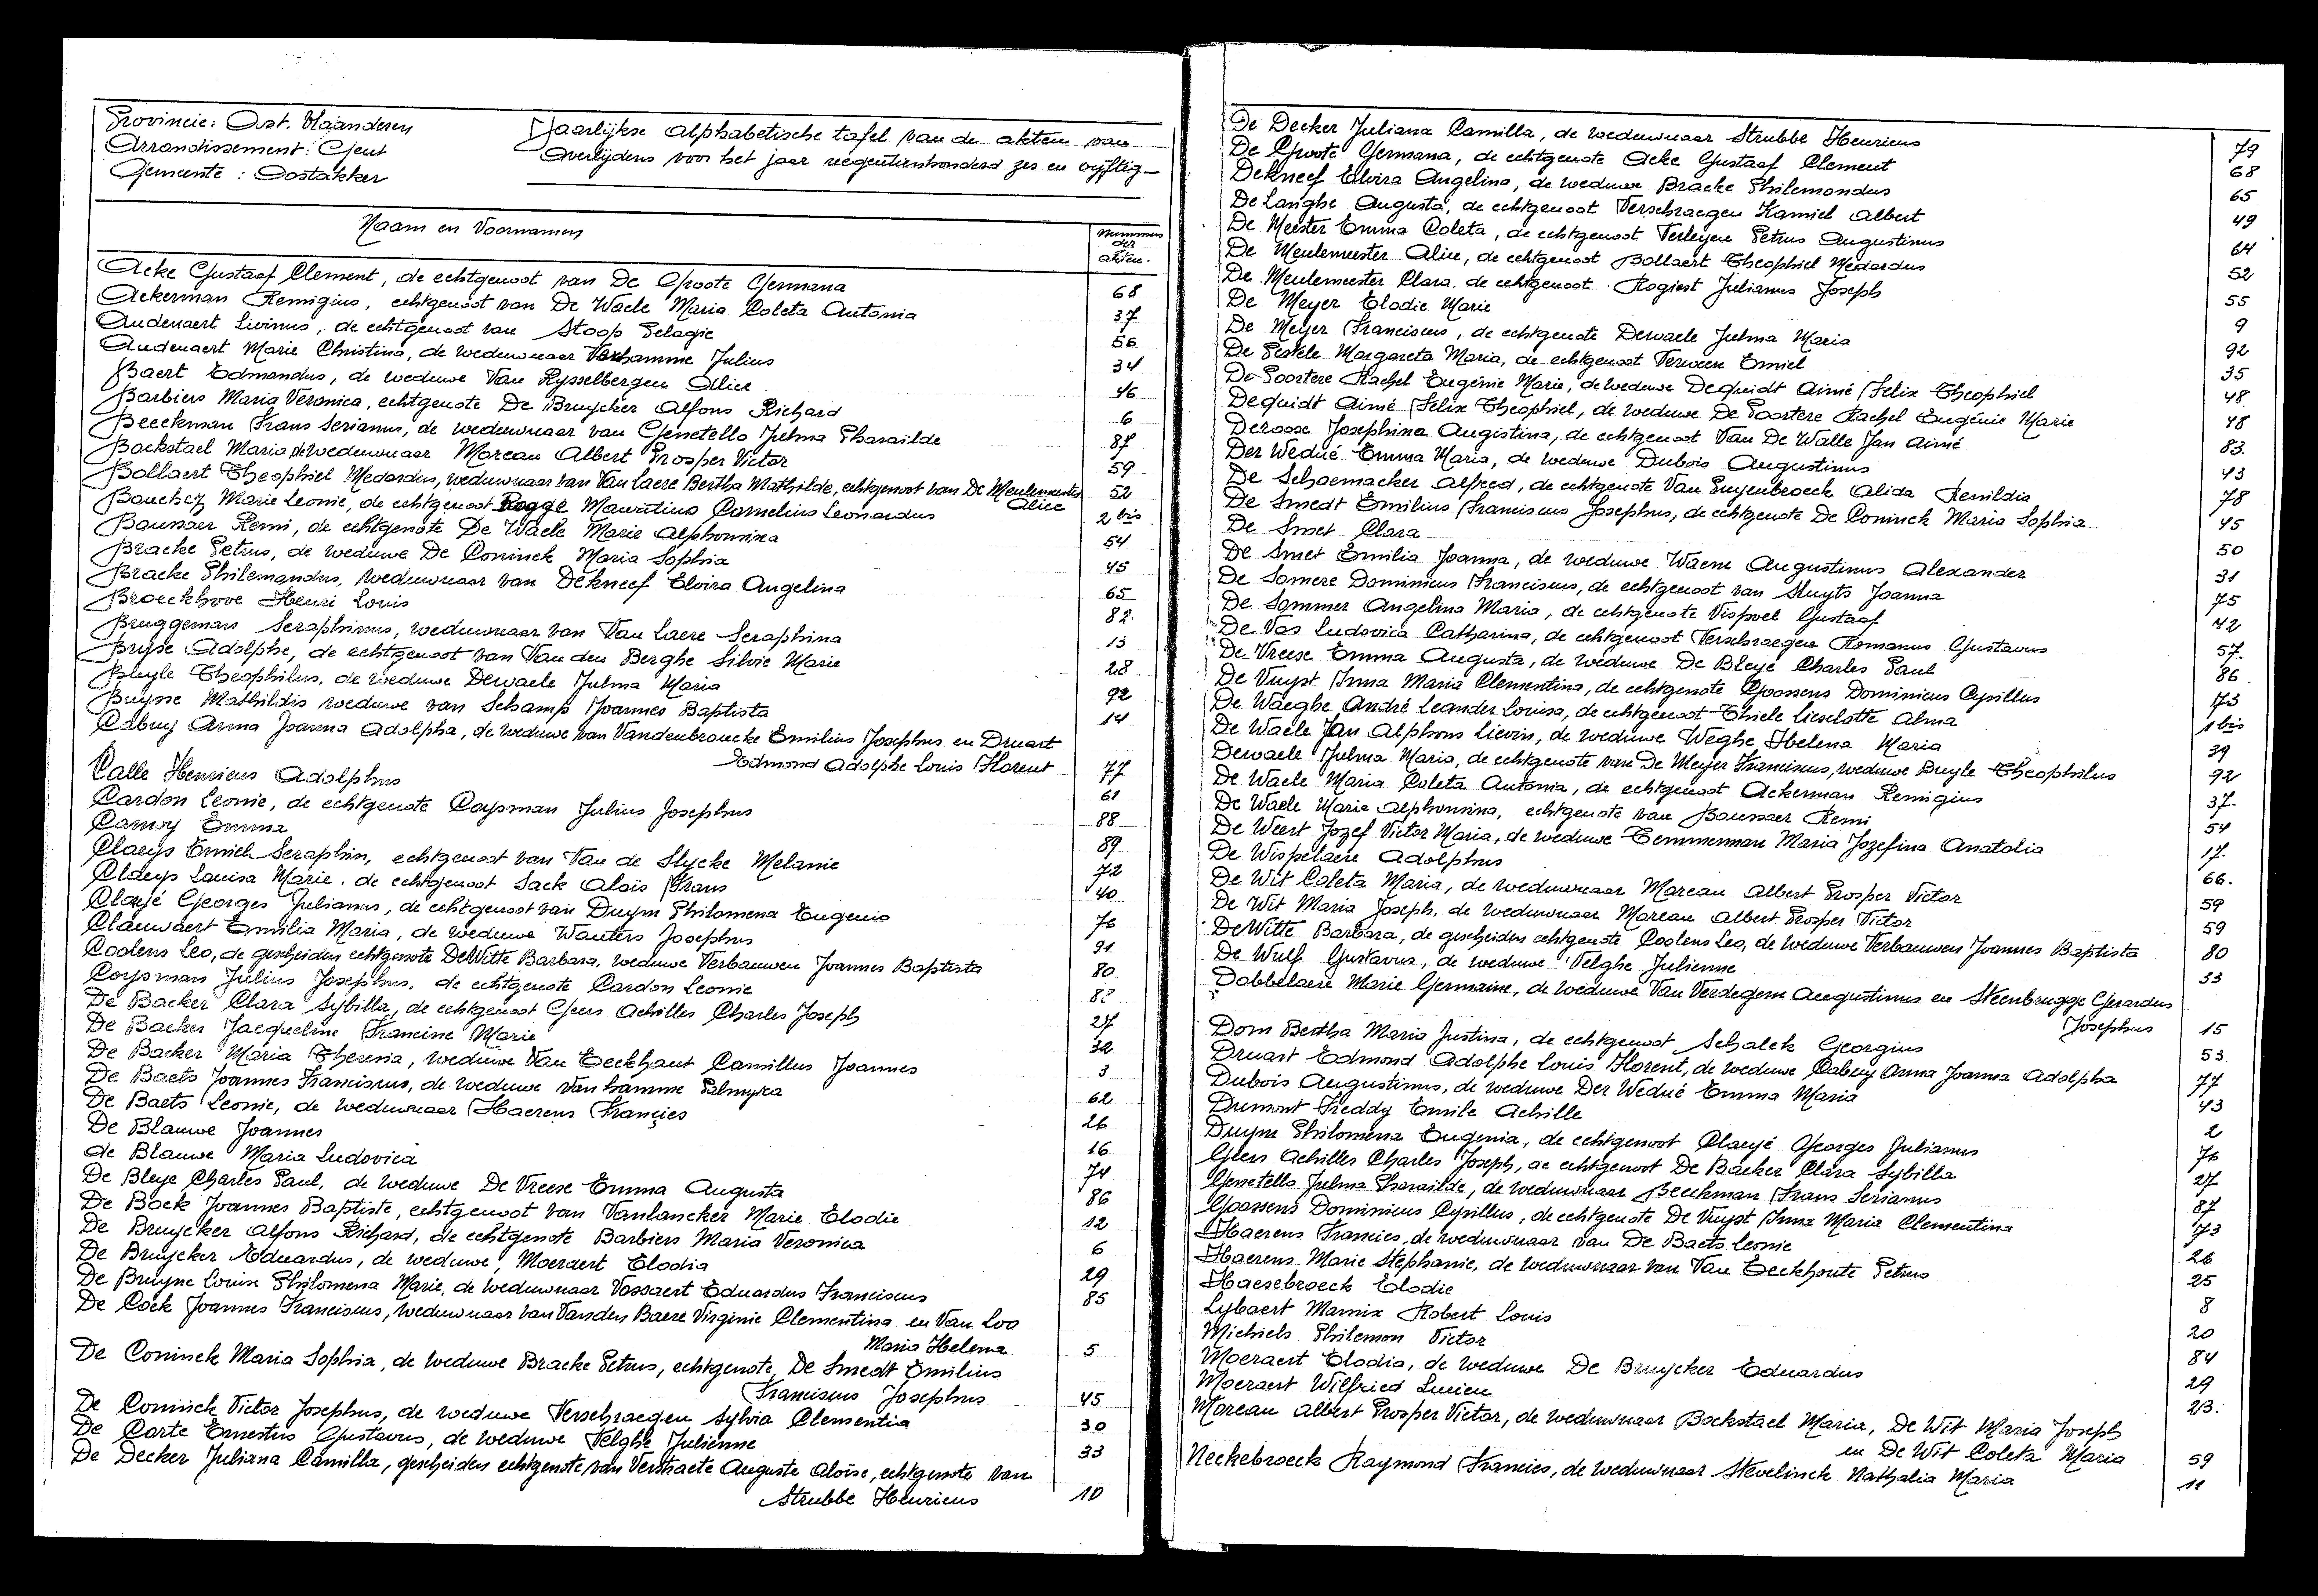 Provincie: Oost. Vlaanderen
Arrondissement: Gent
Gemeente : Oostakker
Jaarlijkse alphabetische tafel van de akten van
Overlijdens voor het jaar negentienhonderd zes en vijftig
Naam en Voornamen
nummers
der
akten.
Acke Gustaaf Clement, de echtgenoot van De Groote Germana 68
Ackerman Remigius, echtgenoot van De Waele Maria Coleta Antonia 37
Audenaert Livinus, de echtgenoot van Stoop Pelagie 56
Audenaert Marie Christina, de weduwnaar Verhamme Julius 34
Baert Edmondus, de weduwe Van Rysselbergen Alice 46
Barbiers Maria Veronica, echtgenote De Bruycker Alfons Richard 6
Beeckman Frans Serianus, de weduwnaar van Genetello Julma Pharailde 87
Bockstael Maria de weduwnaar Moreau Albert Prosper Victor 59
Bollaert Theophiel Medardus, weduwnaar van Van Laere Bertha Mathilde, echtgenoot van De Meulemeester
Alice 52
Bouchez Marie Leonie, de echtgenoot Rogge Mauritius Cornelius Leonardus 2 bis
Baunaer Remi, de echtgenote De Waele Marie Alphonsina 54
Bracke Petrus, de weduwe De Coninck Maria Sophia 45
Bracke Philemondus, weduwnaar van Dekneef Elvira Angelina 65
Broeckhove Henri Louis 82.
Bruggeman Seraphinus, weduwnaar van Van Laere Seraphina 13
Bryse Adolphe, de echtgenoot van Van den Berghe Silvie Marie 28
Buyle Theophilus, de weduwe Dewaele Julma Maria 92
Buysse Mathildis weduwe van Schamp Joannes Baptista 14
Cabuy Anna Joanna Adolpha, de weduwe van Vandenbroucke Emilius Josephus en Druart
Edmond Adolphe Louis Florent 77
Calle Henricus Adolphus 61
Cardon Leonie, de echtgenote Coysman Julius Josephus 88
Camoy Emma 89
Claeys Emiel Seraphin, echtgenoot van Van de Slycke Melanie 72
Claeys Louisa Marie, de echtgenoot Sack Aloïs Frans 40
Clayé Georges Julianus, de echtgenoot van Duym Philomena Eugenia 76
Clauwaert Emilia Maria, de weduwe Wauters Josephus 91
Coolens Leo, de gescheiden echtgenote De Witte Barbara, weduwe Verbauwen Joannes Baptista 80
Coysman Julius Josephus, de echtgenote Cardon Leonie
De Backer Clara Sybilla, de echtgenoot Geers Achilles Charles Joseph 27
De Backer Jacqueline Francine Marie 32
De Backer Maria Theresia, weduwe Van Eeckhaut Camillus Joannes 3
De Baets Joannes Franciscus, de weduwe Van hamme Palmyra 62
De Baets Leonie, de weduwnaar Haerens Françies 26
De Blauwe Joannes 16
de Blauwe Maria Ludovica 74
De Bleye Charles Paul, de weduwe De Vreese Emma Augusta 86
De Bock Joannes Baptiste, echtgenoot van Vanlancker Marie Elodie 12
De Bruycker Alfons Richard, de echtgenote Barbiers Maria Veronica 6
De Bruycker Eduardus, de weduwe, Moeraert Elodia 29
De Bruyne Louise Philomena Marie, de weduwnaar Vossaert Eduardus Franciscus 85
De Cock Joannes Franciscus, weduwnaar van Vanden Baere Virginie Clementina en Van Loo
Maria Helena 5
De Coninck Maria Sophia, de weduwe Bracke Petrus, echtgenote De Smedt Emilius
Franciscus Josephus 45
De Coninck Victor Josephus, de weduwe Verschraegen Sylvia Clementia 30
De Corte Ernestus Gustavus, de weduwe Velghe Julienne 33
De Decker Juliana Camilla, gescheiden echtgenote van Verstraete Auguste Aloïse, echtgenote van
Strubbe Henricus 10
De Decker Juliana Camilla, de weduwnaar Strubbe Henricus 79
De Groote Germana, de echtgenote Acke Gustaaf Clement 68
Dekneef Elvira Angelina, de weduwe Bracke Philemondus 65
De Langhe Augusta, de echtgenoot Verschraegen Kamiel Albert 49
De Meester Emma Coleta, de echtgenoot Verleyen Petrus Augustinus 64
De Meulemeester Alice, de echtgenoot Bollaert Theophiel Medardus 52
De Meulemeester Clara, de echtgenoot Rogiest Julianus Joseph 55
De Meyer Elodie Marie 9
De Meyer Franciscus, de echtgenote Dewaele Julma Maria 92
De Pestele Margareta Maria, de echtgenoot Verween Emiel 35
De Poortere Rachel Eugénie Marie, de weduwe Dequidt Aimé Felix Theophiel 48
Dequidt Aimé Felix Theophiel, de weduwe De Poortere Rachel Eugénie Marie 48
Derosse Josephina Augistina, de echtgenoot Van De Walle Jan Aimé 83.
Der Wedué Emma Maria, de weduwe Dubois Augustinus 43
De Schoemacker Alfred, de echtgenote Van Puyenbroeck Alida Renildis 78
De Smedt Emilius Franciscus Josephus, de echtgenote De Coninck Maria Sophia 45
De Smet Clara 50
De Smet Emilia Joanna, de weduwe Waem Augustinus Alexander 31
De Somere Dominicus Franciscus, de echtgenoot van Sluyts Joanna 75
De Sommer Angelina Maria, de echtgenote Vispoel Gustaaf 42
De Vos Ludovica Catharina, de echtgenoot Verschraegen Romanus Gustavus 57.
De Vreese Emma Augusta, de weduwe De Bleye Charles Paul 86
De Vuyst Irma Maria Clementina, de echtgenote Goossens Dominicus Cyrillus 73
De Waeghe André Leander Louisa, de echtgenoot Thiele Lieselotte Alma 1 bis
De Waele Jan Alphons Lievin, de weduwe Weghe Helena Maria 39
Dewaele Julma Maria, de echtgenote van De Meyer Franciscus, weduwe Buyle Theophilus 92
De Waele Maria Coleta Antonia, de echtgenoot Ackerman Remigius 37.
De Waele Marie Alphonsina, echtgenote van Baunaer Remi 54
De Weert Jozef Victor Maria, de weduwe Temmerman Maria Jozefina Anatolia 17.
De Wispelaere Adolphus 66.
De Wit Coleta Maria, de weduwnaar Moreau Albert Prosper Victor 59
De Wit Maria Joseph, de weduwnaar Moreau Albert Prosper Victor 59
De Witte Barbara, de gescheiden echtgenote Coolens Leo, de weduwe Verbauwen Joannes Baptista 80
De Wulf Gustavus, de weduwe Velghe Julienne 33
Dobbelaere Marie Germaine, de weduwe Van Verdegem Augustinus en Steenbrugge Gerardus
Josephus 15
Dom Bertha Maria Justina, de echtgenoot Schalck Georgius 53
Druart Edmond Adolphe Louis Florent, de weduwe Cabuy Anna Joanna Adolpha 77
Dubois Augustinus, de weduwe Der Wedué Emma Maria 43
Dumont Freddy Emile Achille 2
Duym Philomena Eugenia, de echtgenoot Clayé Georges Julianus 76
Geers Achilles Charles Joseph, de echtgenoot De Backer Clara Sybilla 27
Genetello Julma Pharailde, de weduwnaar Beeckman Frans Serianus 87
Goossens Dominicus Cyrillus, de echtgenote De Vuyst Irma Maria Clementina 73
Haerens Francies, de weduwnaar van De Baets Leonie 26
Haerens Marie Stephanie, de weduwnaar van Van Eeckhoute Petrus 25
Haesebroeck Elodie 8
Lybaert Marnix Robert Louis 20
Michiels Philemon Victor 84
Moeraert Elodia, de weduwe De Bruycker Eduardus 29
Moeraert Wilfried Lucien 23.
Moreau Albert Prosper Victor, de weduwnaar Bockstael Maria, De Wit Maria Joseph
en De Wit Coleta Maria 59
Neckebroeck Raymond Francies, de weduwnaar Stevelinck Nathalia Maria 11